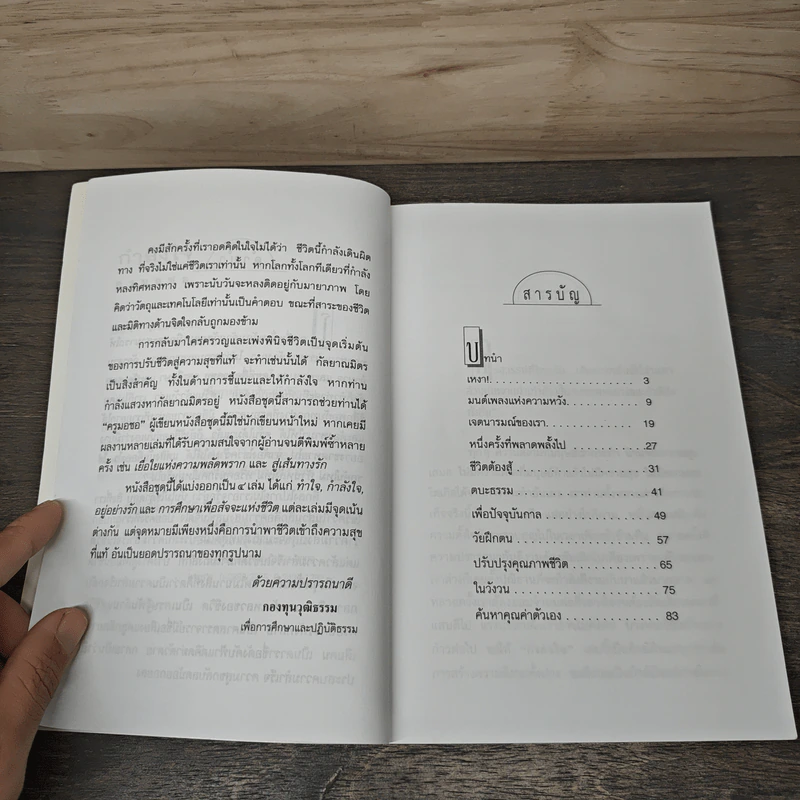 คงมีสักครั้งที่เราอดคิดในใจไม่ได้ว่า ชีวิตนี้กำลังเดินผิด
ทาง ที่จริงไม่ใช่แค่ชีวิตเราเท่านั้น หากโลกทั้งโลกทีเดียวที่กำลัง
หลงทิศหลงทาง เพราะนับวันจะหลงติดอยู่กับมายาภาพ โดย
คิดว่าวัตถุและเทคโนโลยีเท่านั้นเป็นคำตอบ ขณะที่สาระของชีวิต
และมิติทางด้านจิตใจกลับถูกมองข้าม
การกลับมาใคร่ครวญและเพ่งพินิจชีวิตเป็นจุดเริ่มต้น
ของการปรับชีวิตสู่ความสุขที่แท้ จะทำเช่นนั้นได้ กัลยาณมิตร
เป็นสิ่งสำคัญ ทั้งในด้านการชี้แนะและให้กำลังใจ หากท่าน
กำลังแสวงหากัลยาณมิตรอยู่ หนังสือชุดนี้สามารถช่วยท่านได้
"ครูมอชอ" ผู้เขียนหนังสือชุดนี้มิใช่นักเขียนหน้าใหม่ หากเคยมี
ผลงานหลายเล่มที่ได้รับความสนใจจากผู้อ่านจนตีพิมพ์ซ้ำหลาย
ครั้ง เช่น เยื่อใยแห่งความพลัดพราก และ สู่เส้นทางรัก
หนังสือชุดนี้ได้แบ่งออกเป็น ๔ เล่ม ได้แก่ ทำใจ, กำลังใจ,
อยู่อย่างรัก และ การศึกษาเพื่อสัจจะแห่งชีวิต แต่ละเล่มมีจุดเน้น
ต่างกัน แต่จุดหมายมีเพียงหนึ่งคือการนำพาชีวิตเข้าถึงความสุข
ที่แท้ อันเป็นยอดปรารถนาของทุกรูปนาม
ด้วยความปรารถนาดี
กองทุนวุฒิธรรม
เพื่อการศึกษาและปฏิบัติธรรม
สารบัญ
บทนำ
เหงา!. . . . . . . . . . . . . . . . . . . . . . 3
มนต์เพลงแห่งความหวัง. . . . . . . . . . . . 9
เจตนารมณ์ของเรา. . . . . . . . . . . . . . . 19
หนึ่งครั้งที่พลาดพลั้งไป . . . . . . . . . . . .27
ชีวิตต้องสู้ . . . . . . . . . . . . . . . . . . . . 31
ตบะธรรม . . . . . . . . . . . . . . . . . . . . 41
เพื่อปัจจุบันกาล . . . . . . . . . . . . . . . . 49
วัยฝึกตน . . . . . . . . . . . . . . . . . . . . 57
ปรับปรุงคุณภาพชีวิต . . . . . . . . . . . . . 65
ในวังวน . . . . . . . . . . . . . . . . . . . . . 75
ค้นหาคุณค่าตัวเอง . . . . . . . . . . . . . . 83